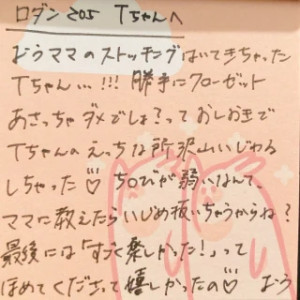 ロダン205 Tちゃんへ
むうママのストッキングはいてきちゃった
Tちゃん…!!! 勝手にクローゼット
あさっちゃダメでしょ?っておしおきで
Tちゃんのえっちな所沢山いじわる
しちゃった♡ ちOびが弱いなんて、
ママに教えたらいじめ抜いちゃうからね?
最後には「すごく楽しかった!」って
ほめてくださって嬉しかったの♡ むう